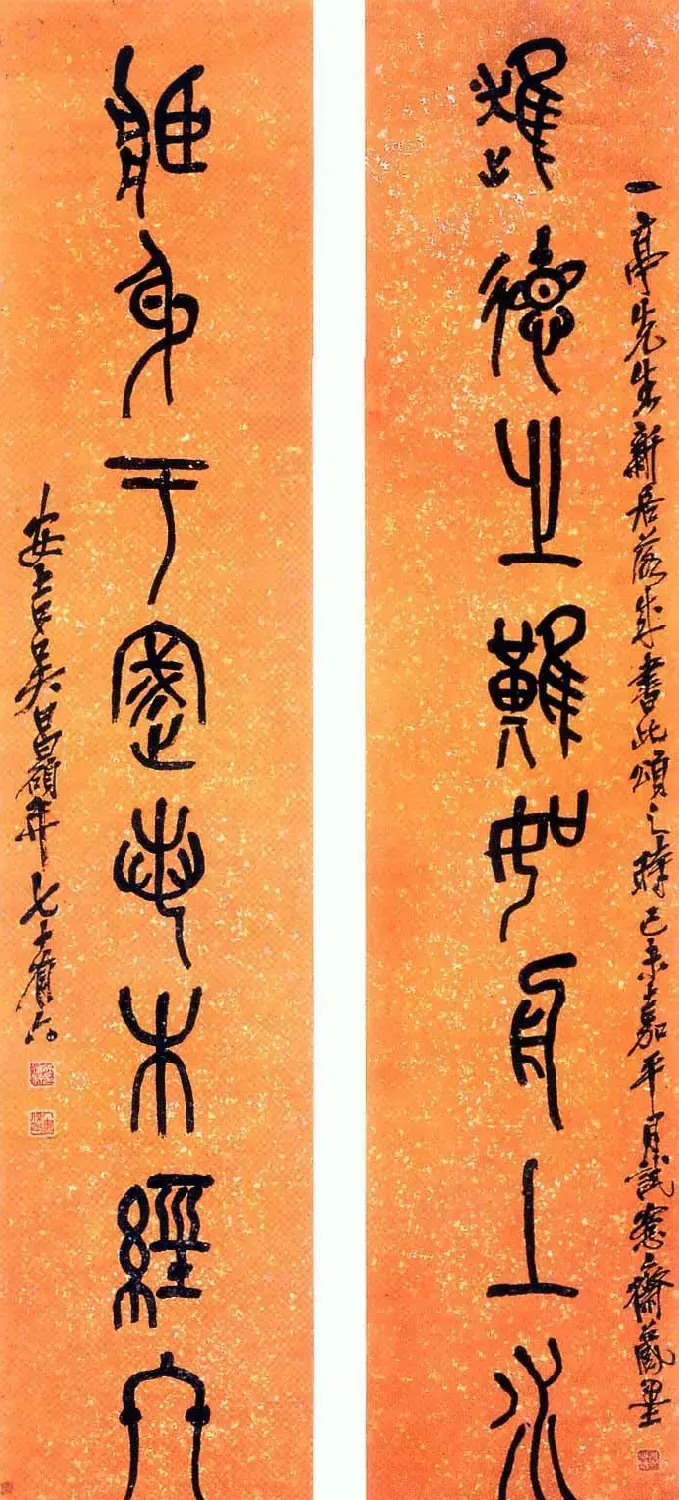 一亭先生新居落成書此頌之時己未嘉平月試愙齋藏墨
進德之難如舟上水
身于密木經冬
安吉吳昌碩年七十有六